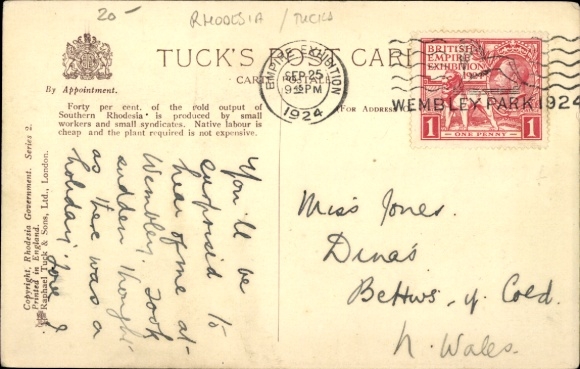 20-
RHODESIA / TUCKS
TUCK'S POST CARD
CARTE POSTALE
By Appointment.
Forty per cent. of the gold output of
Southern Rhodesia is produced by small
workers and small syndicates. Native labour is
cheap and the plant required is not expensive.
(For Address only)
EMPIRE EXHIBITION
SEP 25
9 PM
1924
WEMBLEY PARK 1924
BRITISH
EMPIRE
EXHIBITION
1924
1 ONE PENNY 1
Copyright, Rhodesia Government. Series 2.
Printed in England.
Raphael Tuck & Sons, Ltd., London.
You'll be
surprised to
hear of me at
Wembley. Took
sudden thought
as there was a
holiday. Love J
Miss Jones.
Dinas
Bettws-y-Coed.
N. Wales.